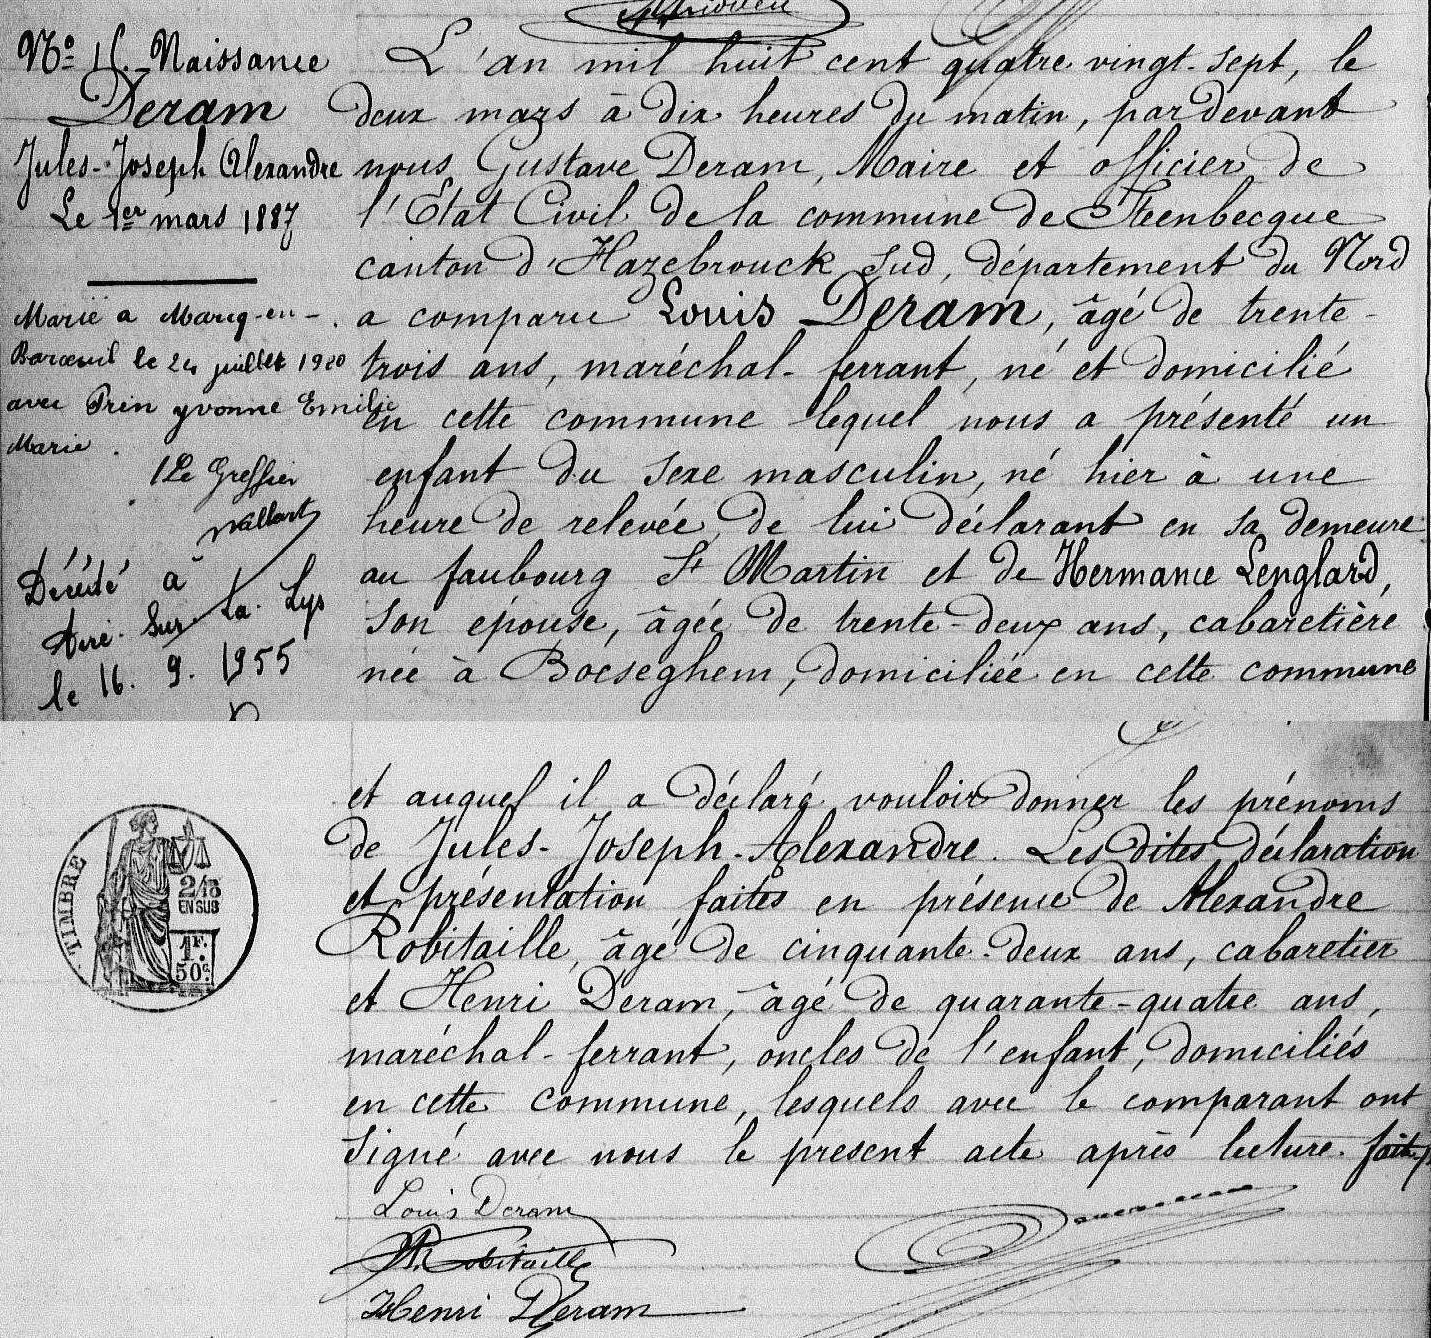 Nº 15. Naissance
Deram
Jules-Joseph Alexandre
Le 1er mars 1887
Marié a Marcq-en-
Barœuil le 24 juillet 1920
avec Prin yvonne Emilie
Marie.
Le Greffier
Wallart
Décédé à
Aire. Sur. La. Lys
le 16. 9. 1955
L'an mil huit cent quatre vingt-sept, le
deux mars à dix heures du matin, pardevant
nous Gustave Deram, Maire et officier de
l'Etat Civil de la commune de Steenbecque
canton d'Hazebrouck sud, département du Nord
a comparu Louis Deram, âgé de trente-
trois ans, maréchal-ferrant, né et domicilié
en cette commune lequel nous a présenté un
enfant du sexe masculin, né hier à une
heure de relevée, de lui déclarant en sa demeure
au faubourg St Martin et de Hermance Lenglard,
son épouse, âgée de trente-deux ans, cabaretière
née à Boeseghem, domiciliée en cette commune
et auquel il a déclaré vouloir donner les prénoms
de Jules-Joseph-Alexandre. Les dites déclaration
et présentation faites en présence de Alexandre
Robitaille, âgé de cinquante-deux ans, cabaretier
et Henri Deram, âgé de quarante-quatre ans,
maréchal-ferrant, oncles de l'enfant, domiciliés
en cette commune, lesquels avec le comparant ont
signé avec nous le présent acte après lecture. fait.
TIMBRE
2/10
EN SUS
1F.
50c.
Louis Deram
A. Robitaille
Henri Deram